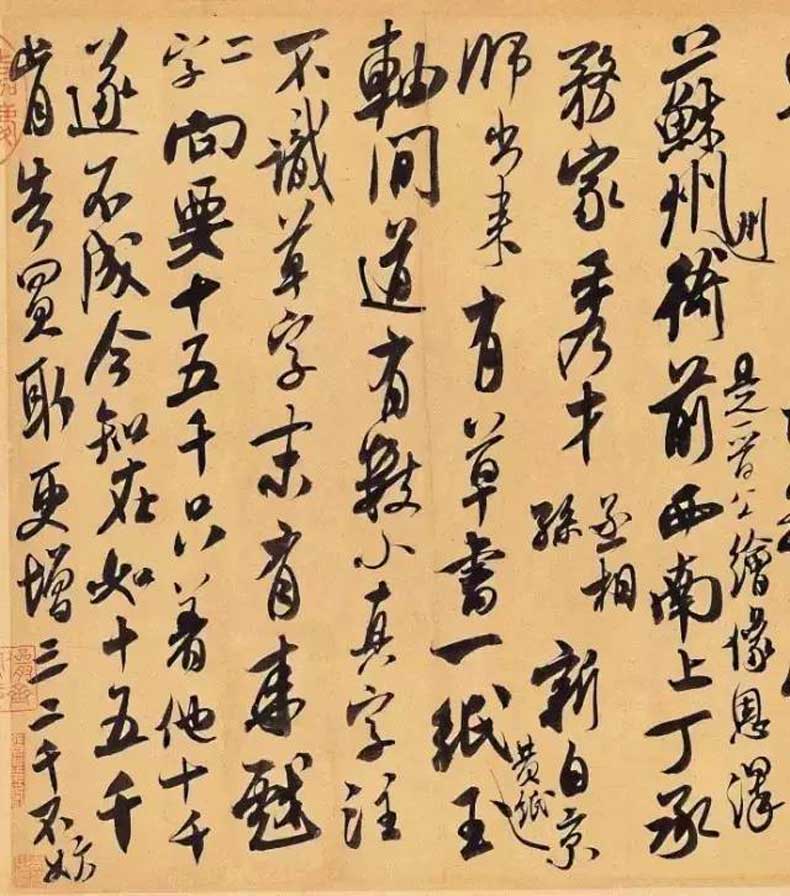 蘇州衙前西南上丁承
州
是晉公繪像恩澤
務家秀才
丞相
孫
新自京
黃紙
師出來有草書一紙玉
軸間道有數小真字注
不識草字末有來戲
二
字向要十五千只著他十千
遂不成今知在如十五千
肯告買取更增三二千不妨